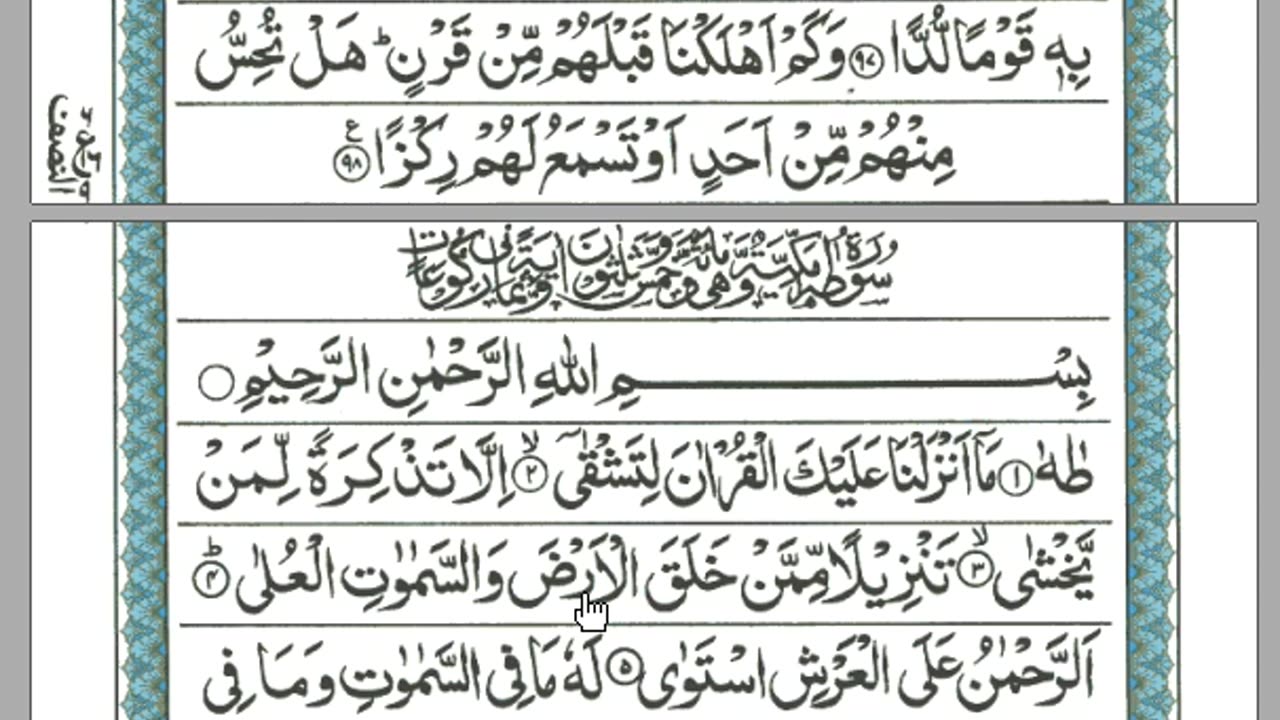 بِهٖ قَوْمًا لُّدًّا ﴿۹۷﴾ وَكَمْ اَهْلَكْنَا قَبْلَهُمْ مِّنْ قَرْنٍ ؕ هَلْ تُحِسُّ
مِنْهُمْ مِّنْ اَحَدٍ اَوْ تَسْمَعُ لَهُمْ رِكْزًا ﴿۹۸﴾ ع
سُوْرَةُ طٰهٰ مَكِّيَّةٌ وَّهِيَ مِائَةٌ وَّخَمْسٌ وَّثَلٰثُوْنَ اٰيَةً وَّثَمَانِيْ رُكُوْعَاتٍ
بِسْمِ اللّٰهِ الرَّحْمٰنِ الرَّحِيْمِ
طٰهٰ ﴿۱﴾ مَاۤ اَنْزَلْنَا عَلَيْكَ الْقُرْاٰنَ لِتَشْقٰۤى ﴿۲﴾ۙ اِلَّا تَذْكِرَةً لِّمَنْ
يَّخْشٰى ﴿۳﴾ۙ تَنْزِيْلًا مِّمَّنْ خَلَقَ الْاَرْضَ وَالسَّمٰوٰتِ الْعُلٰى ﴿۴﴾ؕ
اَلرَّحْمٰنُ عَلَى الْعَرْشِ اسْتَوٰى ﴿۵﴾ لَهٗ مَا فِى السَّمٰوٰتِ وَمَا فِى